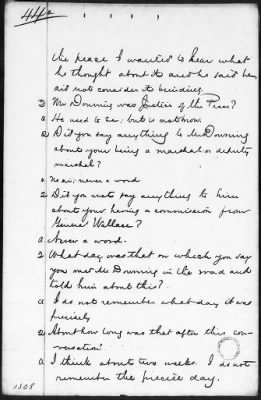 44a
the peace I wanted to hear what
he thought about it and he said he
did not consider it binding.
Q Mr Downing was Justice of the Peace?
a He used to be; but is not now.
Q Did you say anything to Mr Downing
about your being a marshal or deputy
marshal?
a No sir; never a word
Q Did you not say anything to him
about your having a commission from
General Wallace?
a Never a word.
Q What day was that on which you say
you met Mr Downing in the road and
told him about this?
a I do not remember what day it was
precisely
Q About how long was that after this con-
versation?
a I think about two weeks. I do not
remember the precise day.
1308